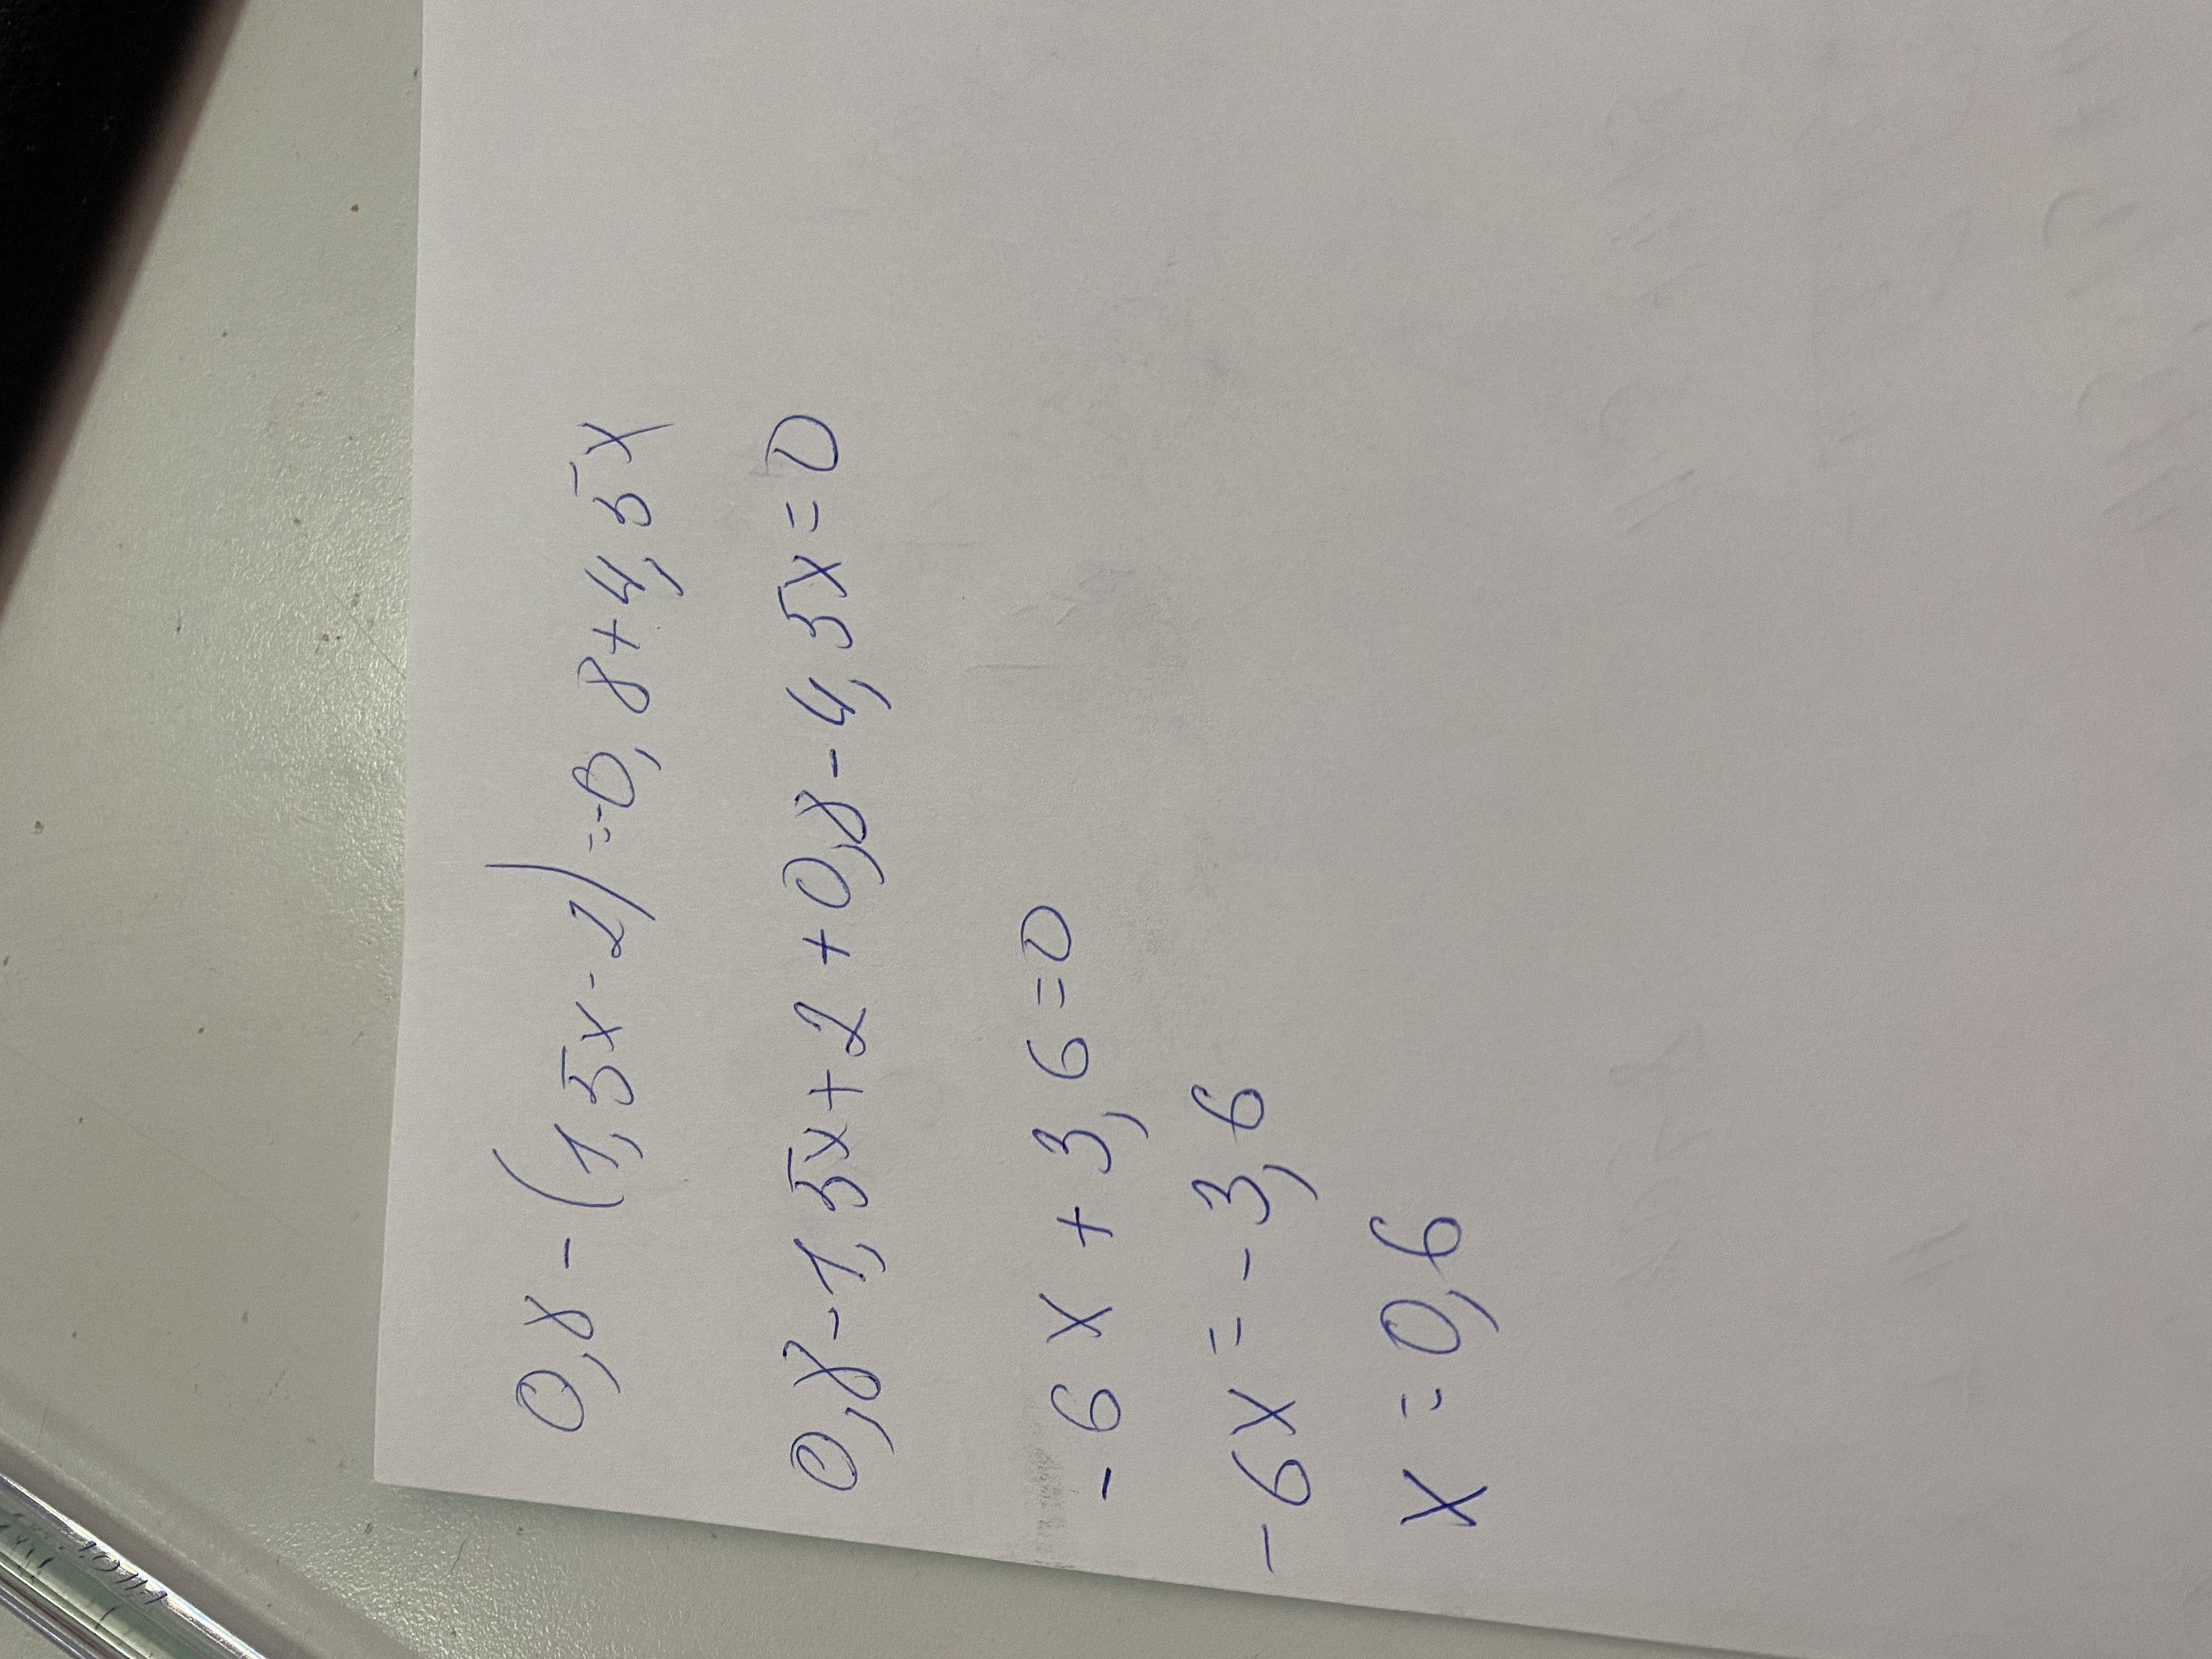 0,8-(1,5x-2)=-0,8+4,5x
0,8-1,5x+2+0,8-4,5x=0
-6x+3,6=0
-6x=-3,6
x=0,6